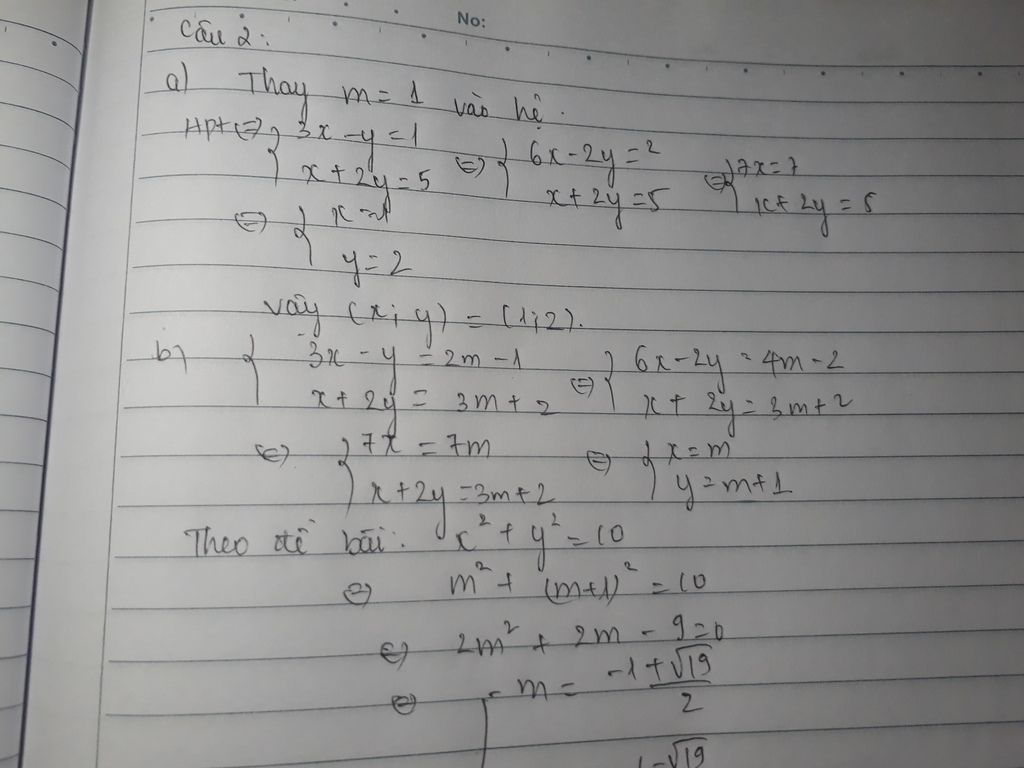 No:
Câu 2:
a) Thay m = 1 vào hệ.
Hpt ⇔ { 3x - y = 1 ⇔ { 6x - 2y = 2 ⇔ { 7x = 7
x + 2y = 5 x + 2y = 5 x + 2y = 5
⇔ { x = 1
y = 2
Vậy (x; y) = (1; 2).
b) { 3x - y = 2m - 1 ⇔ { 6x - 2y = 4m - 2
x + 2y = 3m + 2 x + 2y = 3m + 2
⇔ { 7x = 7m ⇔ { x = m
x + 2y = 3m + 2 y = m + 1
Theo đề bài: x² + y² = 10
⇔ m² + (m+1)² = 10
⇔ 2m² + 2m - 9 = 0
⇔ [ m = \frac{-1 + √19}{2}
1 - √19